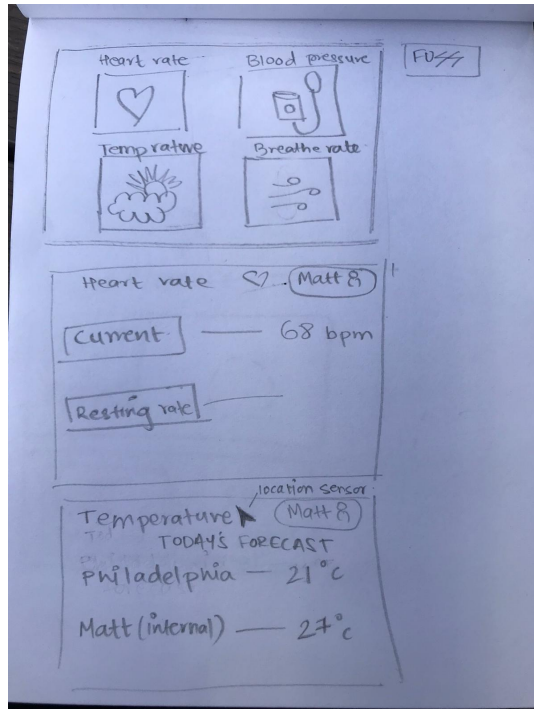 Heart rate
Blood pressure
Temprature
Breathe rate
Heart rate
Matt
Current
68 bpm
Resting rate
location sensor
Temperature
Matt
TODAY'S FORECAST
Philadelphia — 21°c
Matt (internal) — 27°c